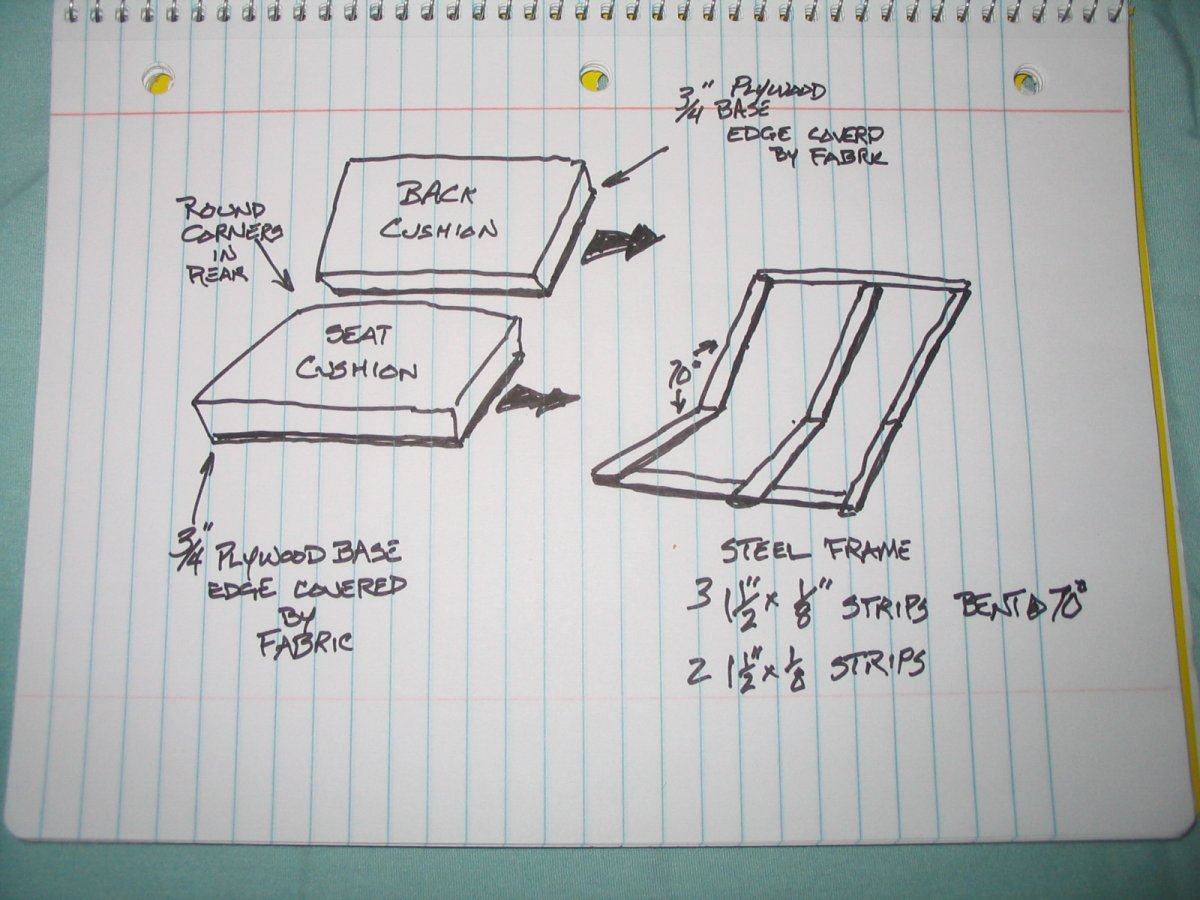 3/4" PLYWOOD
BASE
EDGE COVERD
BY FABRIC
BACK
CUSHION
ROUND
CORNERS
IN
REAR
SEAT
CUSHION
70°
3/4" PLYWOOD BASE
EDGE COVERED
BY
FABRIC
STEEL FRAME
3 1 1/2" x 1/8" STRIPS BENT @ 70°
2 1 1/2" x 1/8 STRIPS